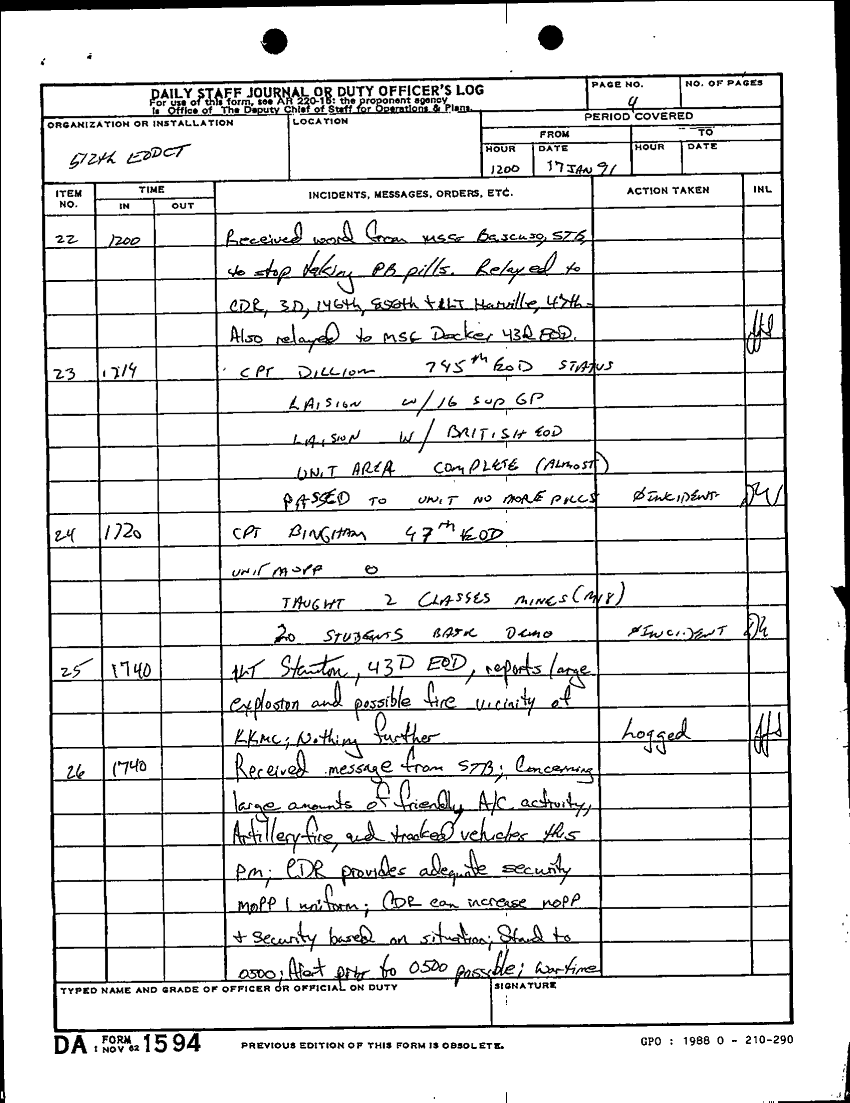 DAILY STAFF JOURNAL OR DUTY OFFICER'S LOG
For use of this form, see AR 220-15: the proponent agency
is Office of The Deputy Chief of Staff for Operations & Plans.
PAGE NO.
4
NO. OF PAGES
ORGANIZATION OR INSTALLATION
512th EODCT
LOCATION
PERIOD COVERED
FROM
TO
HOUR
1200
DATE
17 JAN 91
HOUR
DATE
ITEM NO.
TIME
IN
OUT
INCIDENTS, MESSAGES, ORDERS, ETC.
ACTION TAKEN
INL
22 1200 Received word from MSG STB,
to stop taking PB pills. Relayed to
CDR, 3D, 146th, + 1LT Harville, 47th.
Also relayed to MSG Docker 43d EOD.
23 1714 CPT DILLIOM 745th EOD STATUS
LAISION W/ 16 SUP GP
LAISION W/ BRITISH EOD
UNIT AREA COMPLETE (ALMOST)
PASSED TO UNIT NO MORE PILLS Ø INCIDENT
24 1720 CPT BINGHAM 47th EOD
UNIT MOPP 0
TAUGHT 2 CLASSES MINES (M18)
20 STUDENTS BASIC DEMO Ø INCIDENT
25 1740 1LT Stanton, 43D EOD, reports large
explosion and possible fire vicinity of
KKMC; Nothing further Logged
26 1740 Received message from STB; Concerning
large amounts of friendly A/C activity,
Artillery fire, and tracked vehicles this
pm; CDR provides adequate security
MOPP 1 uniform; CDR can increase MOPP
+ security based on situation; Stand to
0500; Alert prior to 0500 possible; Wartime
TYPED NAME AND GRADE OF OFFICER OR OFFICIAL ON DUTY
SIGNATURE
DA FORM 1 NOV 62 1594
PREVIOUS EDITION OF THIS FORM IS OBSOLETE.
GPO : 1988 O - 210-290